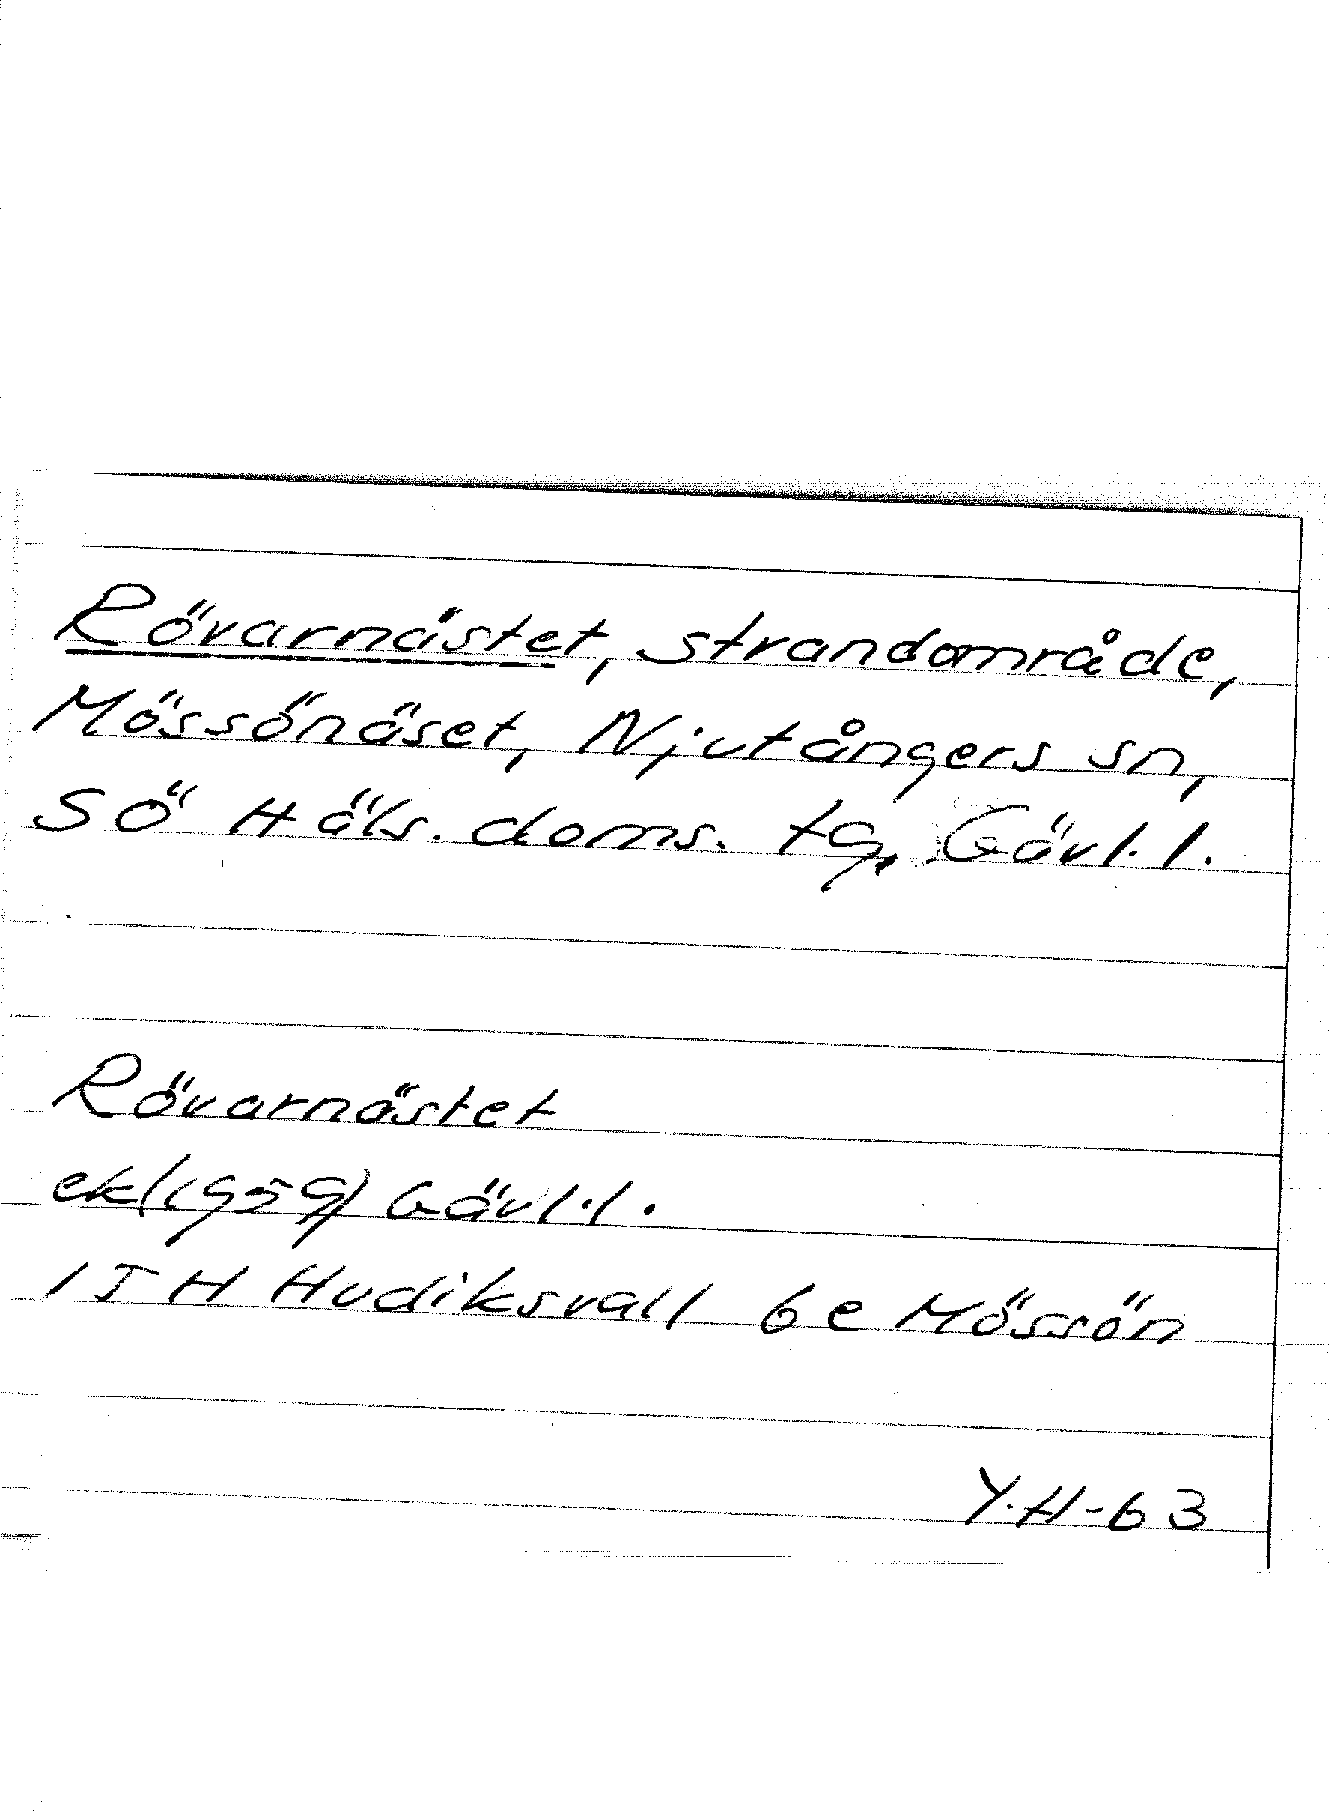 Rövarnästet, strandområde,
Mössönäset, Njutångers sn,
SÖ Häls. doms. tg, Gävl. l.
Rövarnästet
ek (1959) Gävl. l.
15 H Hudiksvall 6e Mössön
Y.H-63